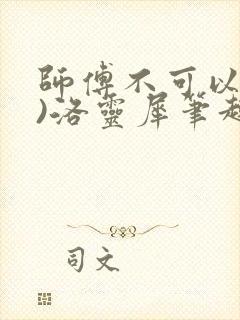 師傅不可以
)洛靈犀筆
司文